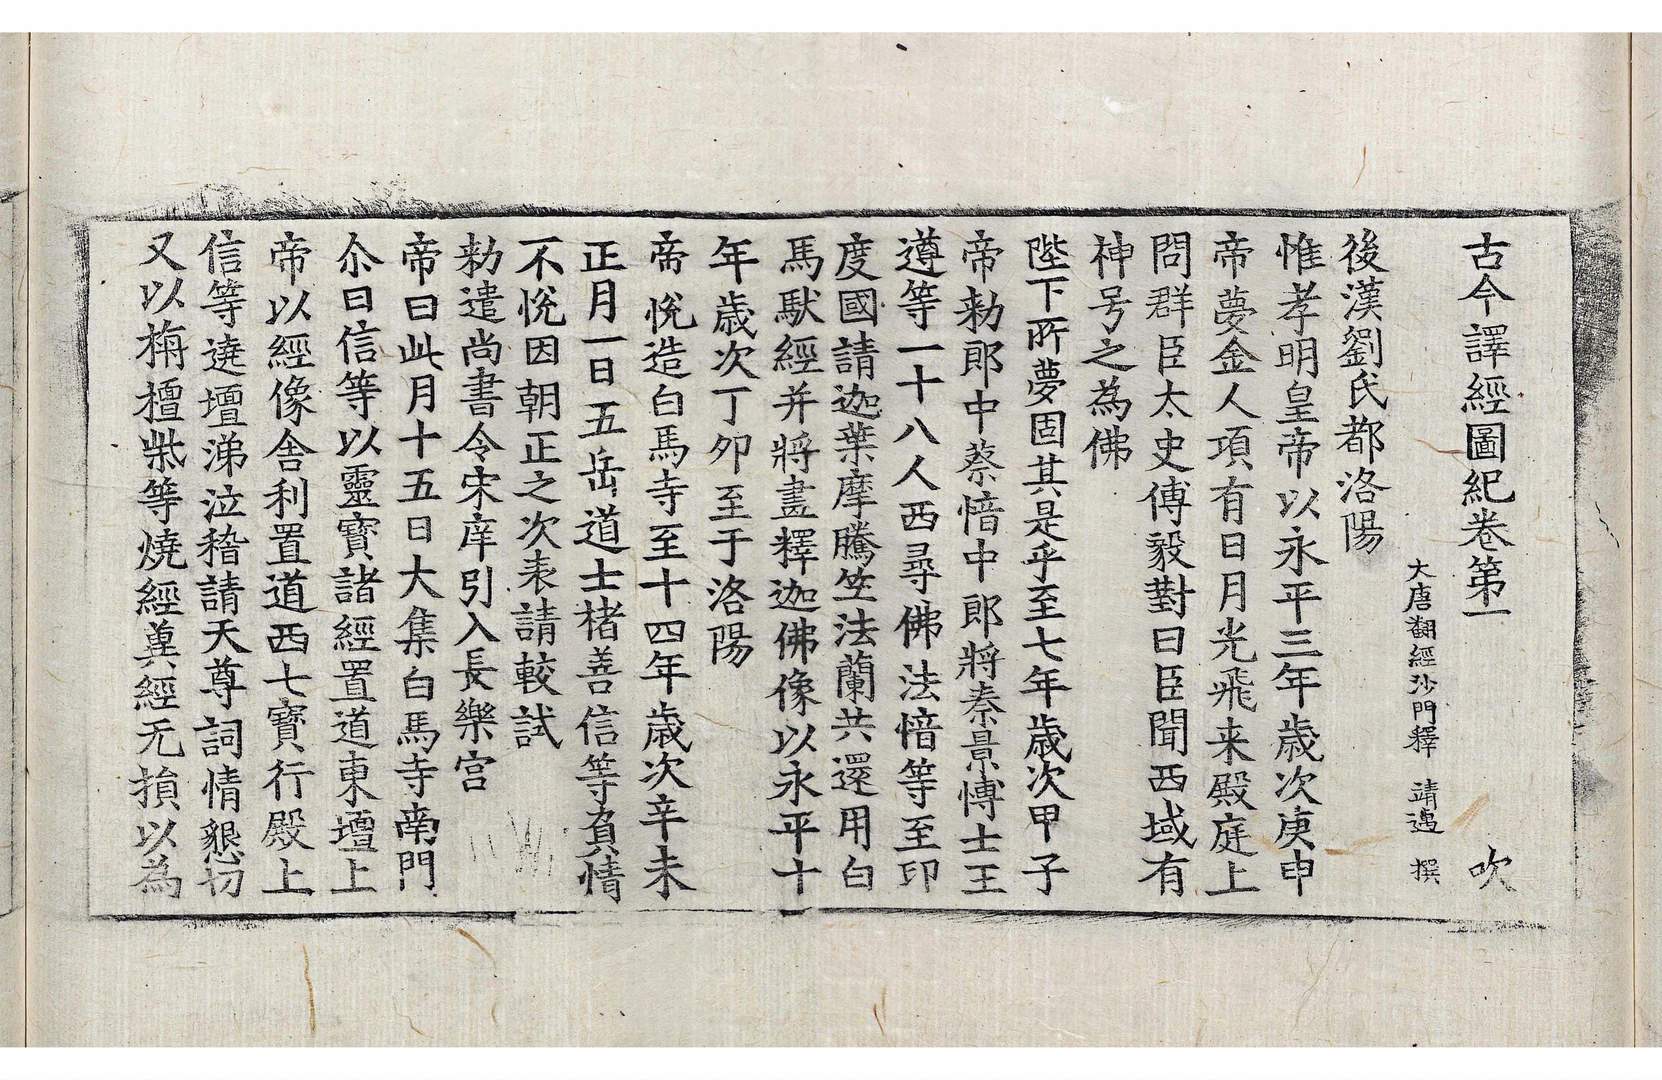 古今譯經圖紀卷第一 吹
大唐翻經沙門釋 靖邁 撰
後漢劉氏都洛陽
惟孝明皇帝以永平三年歲次庚申
帝夢金人項有日月光飛来殿庭上
問群臣太史傅毅對曰臣聞西域有
神号之為佛
陛下所夢固其是乎至七年歲次甲子
帝勑郎中蔡愔中郎將秦景博士王
遵等一十八人西尋佛法愔等至印
度國請迦葉摩騰竺法蘭共還用白
馬馱經并將畫釋迦佛像以永平十
年歲次丁卯至于洛陽
帝悅造白馬寺至十四年歲次辛未
正月一日五岳道士褚善信等負情
不悅因朝正之次表請較試
勑遣尚書令宋庠引入長樂宮
帝曰此月十五日大集白馬寺南門
尒日信等以靈寶諸經置道東壇上
帝以經像舍利置道西七寶行殿上
信等遶壇涕泣稽請天尊詞情懇切
又以栴檀柴等燒經冀經无損以為